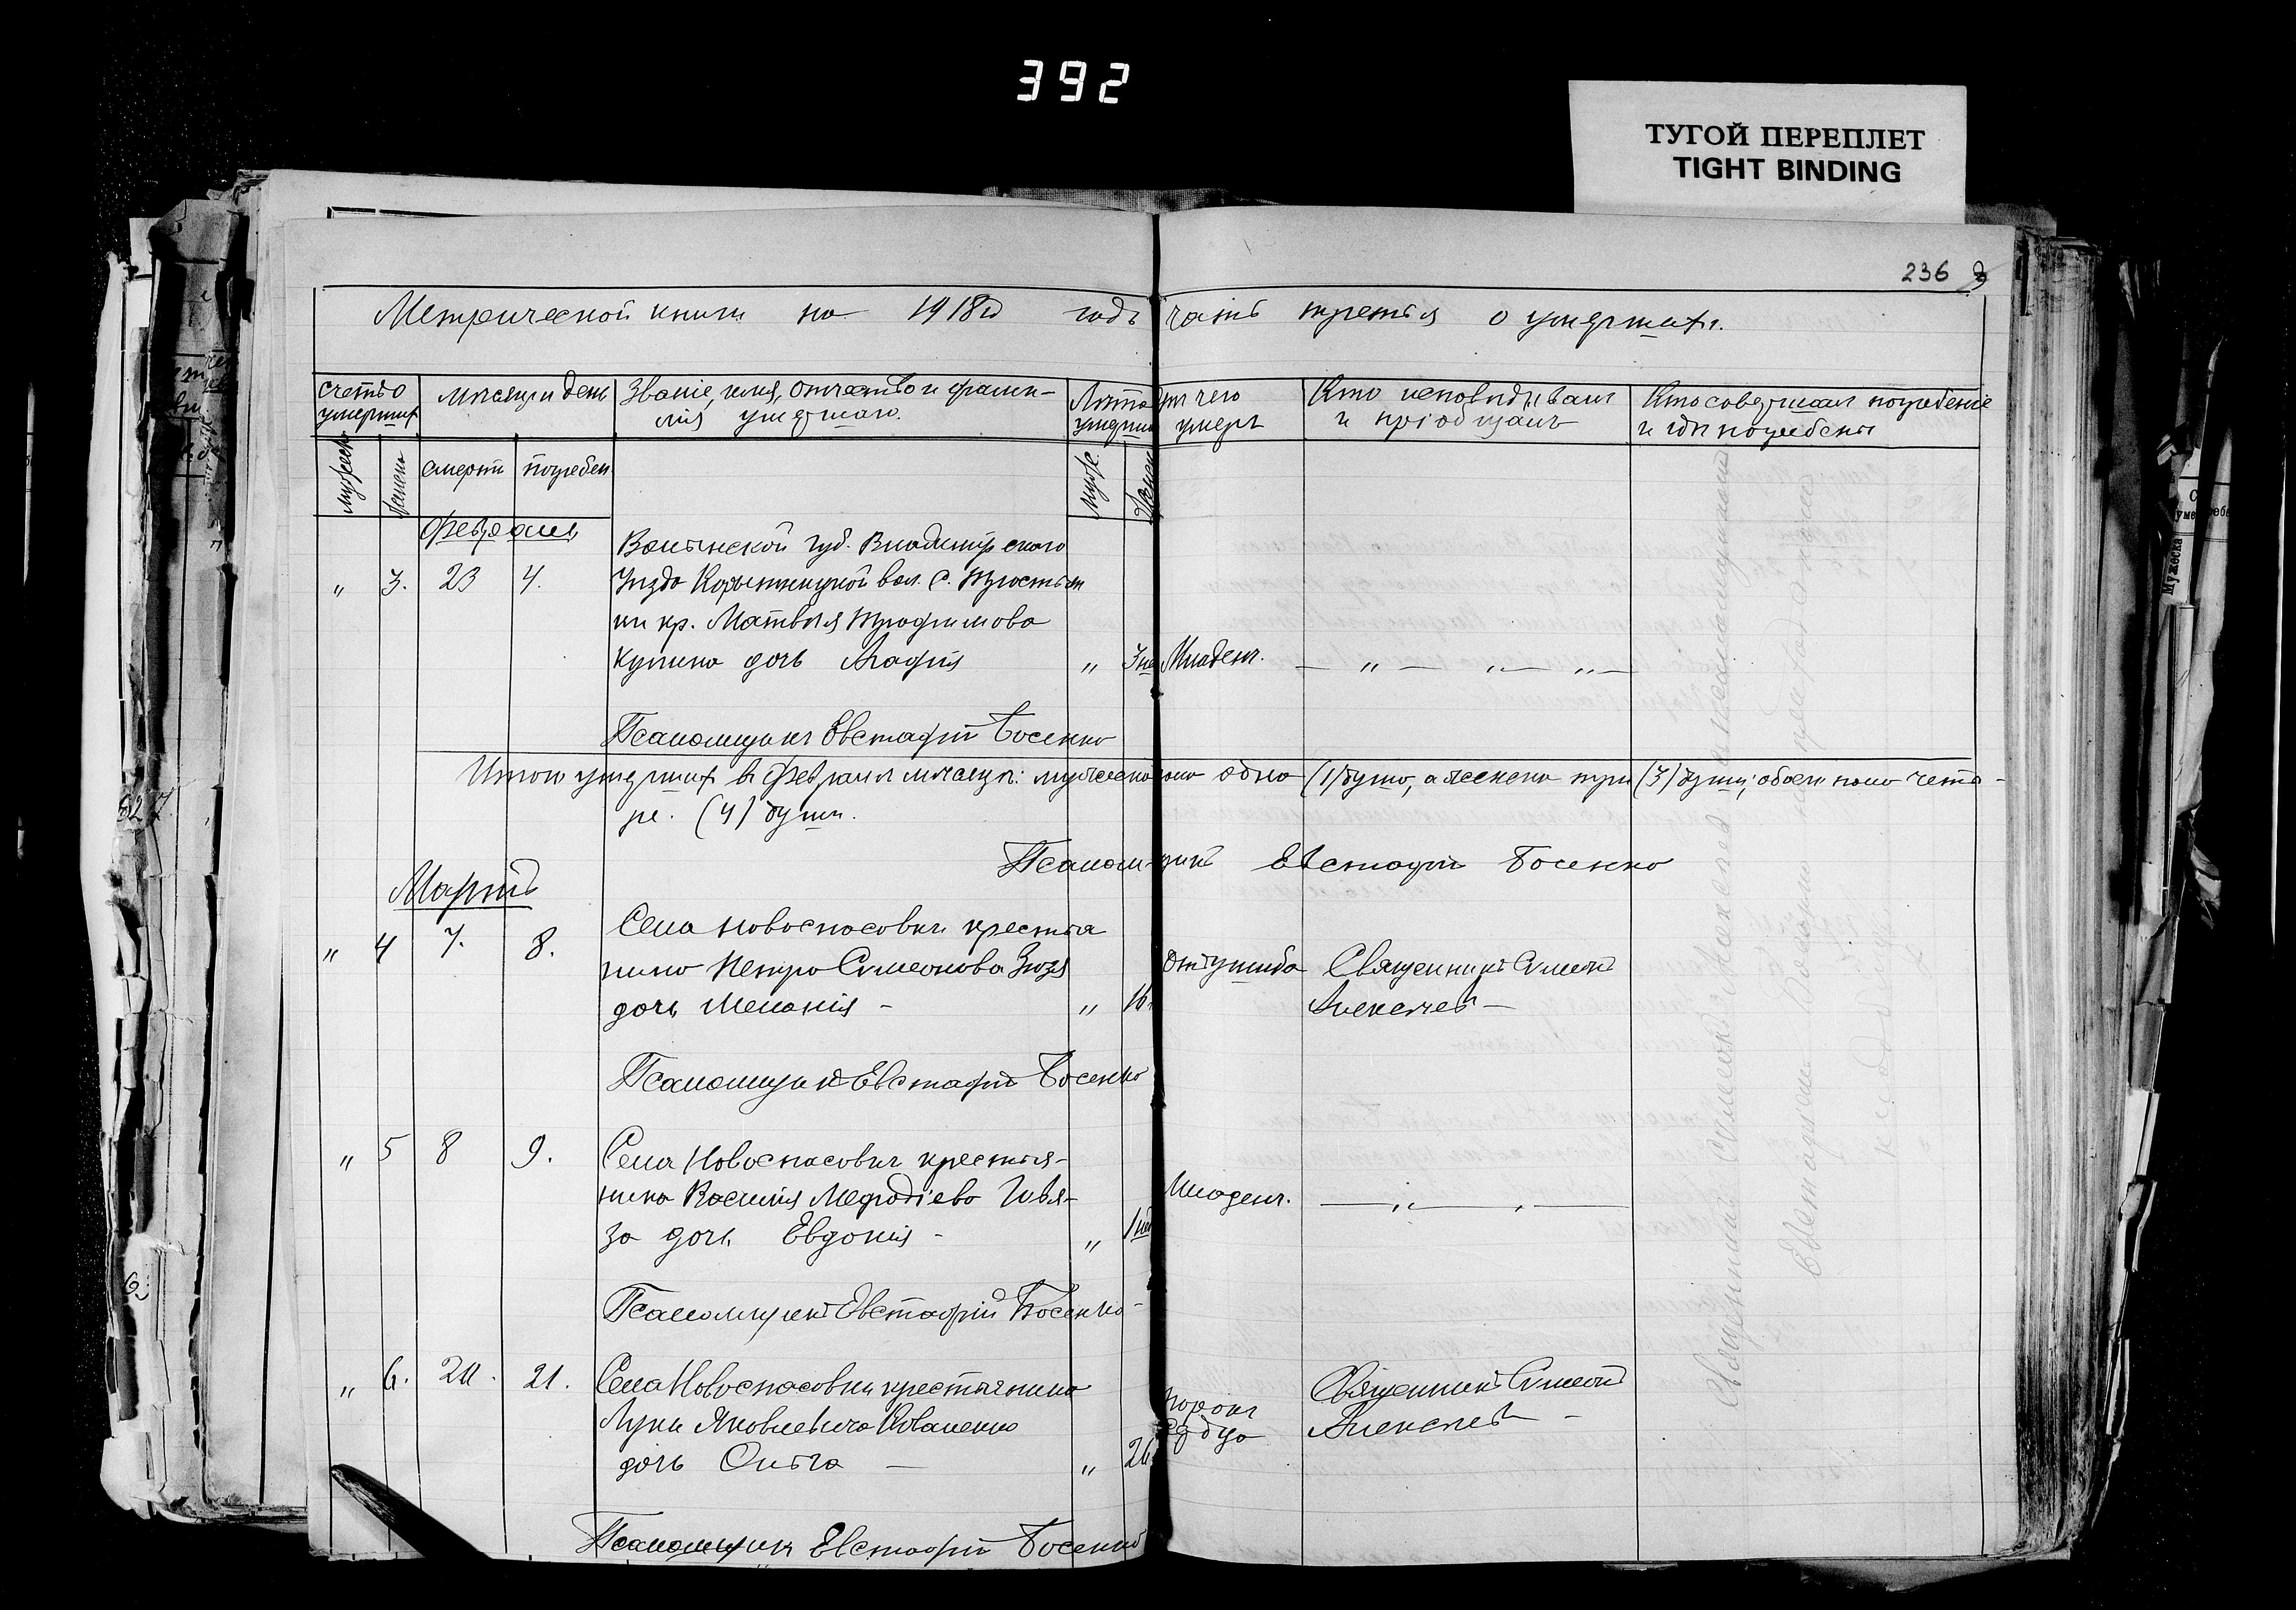 392
ТУГОЙ ПЕРЕПЛЕТ
TIGHT BINDING
236
Метрической книги на 1918й годъ часть третья о умершихъ.
Счетъ умершихъ
Мѣсяцъ и день
Званіе, имя, отчество и фами-
лія умершаго.
Лѣта умерш
отъ чего
умеръ
Кто исповѣдывалъ
и пріобщалъ
Кто совершалъ погребеніе
и гдѣ погребены
мужеска
женска
смерти
погребен
муж.
женск
Февраль
Волынской губ. Владимірскаго
" 3. 23 4. Уѣзда Корытницкой вол. с. Тростян
ки кр. Матвѣя Трофимова
дочь Агафія " 3 не Младенч. — " — " — " —
Псаломщикъ Евстафій Босенко
Итого умершихъ въ Февралѣ мѣсяцѣ: мужеска пола одна (1) душа, а женска три (3) души; обоего пола четы-
ре. (4) души.
Псаломщикъ Евстафій Босенко
Мартъ
" 4 7. 8. Села Новоспасовки крестья
нина Петра Симеонова Зюзя
дочь Меланія - " 16
отъ ушиба
Священникъ Симеонъ
Алексѣевъ —
Псаломщикъ Евстафій Босенко
" 5 8 9. Села Новоспасовки крестья-
нина Василія Мефодіева Говя-
за дочь Евдокія - " 1 нед
Младенч.
Псаломщикъ Евстафій Босенко -
" 6. 20. 21. Села Новоспасовки крестьянина
Луки Яковлевича Коваленко
дочь Ольга — " 26
порокъ
сердца
Священникъ Симеонъ
Алексѣевъ —
Псаломщикъ Евстафій Босенко